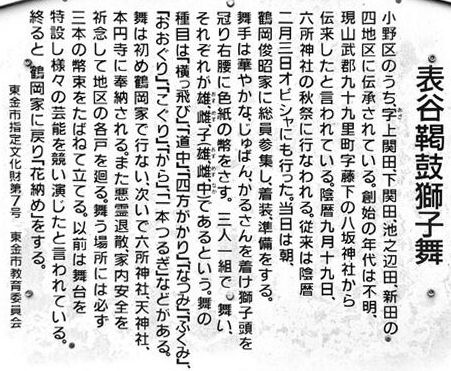 表谷鞨鼓獅子舞
小野区のうち、字上関田、下関田、池之辺田、新田の
四地区に伝承されている。創始の年代は不明、
現山武郡九十九里町字藤下の八坂神社から
伝来したと言われている。陰暦九月十九日、
六所神社の秋祭に行なわれる。従来は陰暦
二月三日オビシャにも行った。当日は朝、
鶴岡俊昭家に総員参集し、着装、準備をする。
舞手は華やかな、じゅばん、かるさんを着け獅子頭を
冠り右腰に色紙の幣をさす。三人一組で舞い、
それぞれが雄、雌、子(雄雌中)であるという。舞の
種目は「横っ飛び」、「道中」、「四方がかり」、「なつみ」、「ふくみ」、
「おおぐり」、「こぐり」、「から」、「一本つるぎ」などがある。
舞は初め鶴岡家で行ない、次いで六所神社、天神社、
本円寺に奉納される。また悪霊退散、家内安全を
祈念して地区の各戸を廻る。舞う場所には必ず
三本の幣束をたばねて立てる。以前は舞台を
特設し様々の芸能を競い演じたと言われている。
終ると、鶴岡家に戻り「花納め」をする。
東金市指定文化財第7号 東金市教育委員会